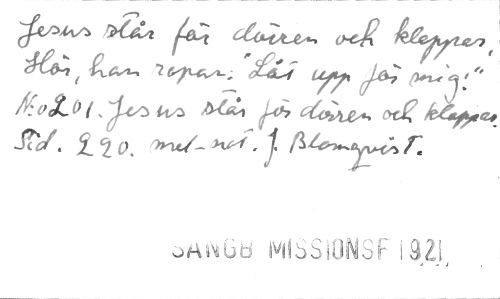 Jesus står för dörren och klappar,
Hör, han ropar: "Låt upp för mig!"
N:o 201. Jesus står för dörren och klappar.
Sid. 220. mel-not. J. Blomqvist.
SÅNGB MISSIONSF 1921